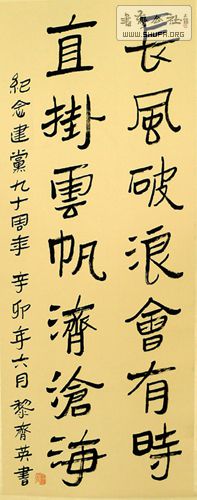 長風破浪會有時
直掛雲帆濟滄海
紀念建黨九十周年 辛卯年六月 黎齊英書
WWW.SHUFA.ORG